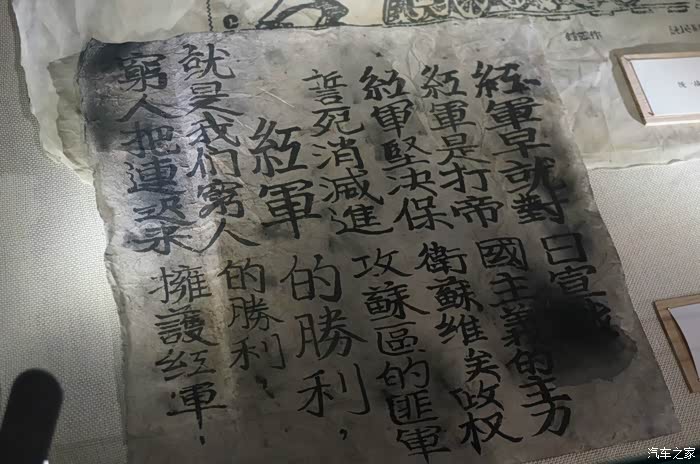 紅軍早就對日宣
紅軍是打帝國主義的主力
紅軍堅决保衛蘇维矣政权
誓死消滅進攻蘇區的匪軍
紅軍的勝利，
就是我们窮人的勝利，
窮人把連来擁護紅軍！
汽车之家